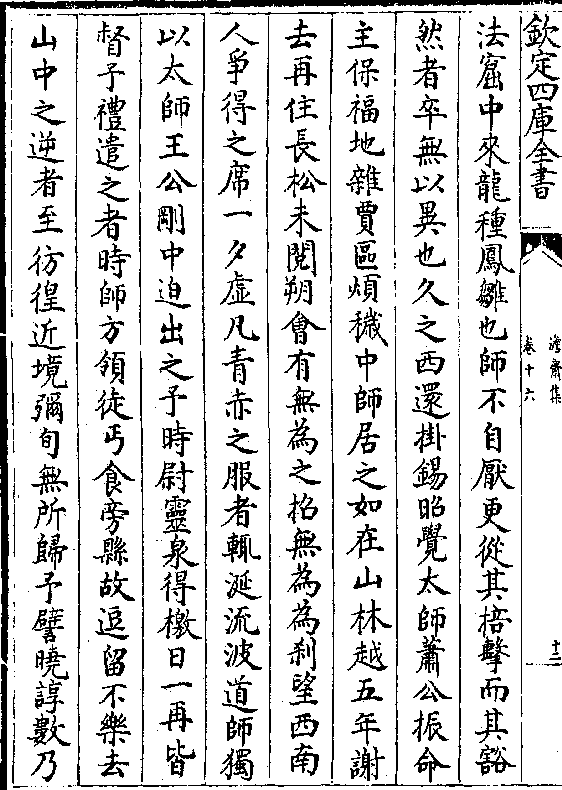 欽定四庫全書
澹齋集
卷十六
十二
法窟中來龍種鳳雛也師不自厭更從其棓擊而其豁
然者卒無以異也久之西還掛錫昭覺太師蕭公振命
主保福地雜賈區煩穢中師居之如在山林越五年謝
去再住長松未閱朔會有無為之招無為為刹望西南
人爭得之席一夕虛凡青赤之服者輒涎流波道師獨
以太師王公剛中迫出之予時尉靈泉得檄日一再皆
督予禮遣之者時師方領徒丐食旁縣故逗留不樂去
山中之逆者至彷徨近境彌旬無所歸予譬曉諄數乃